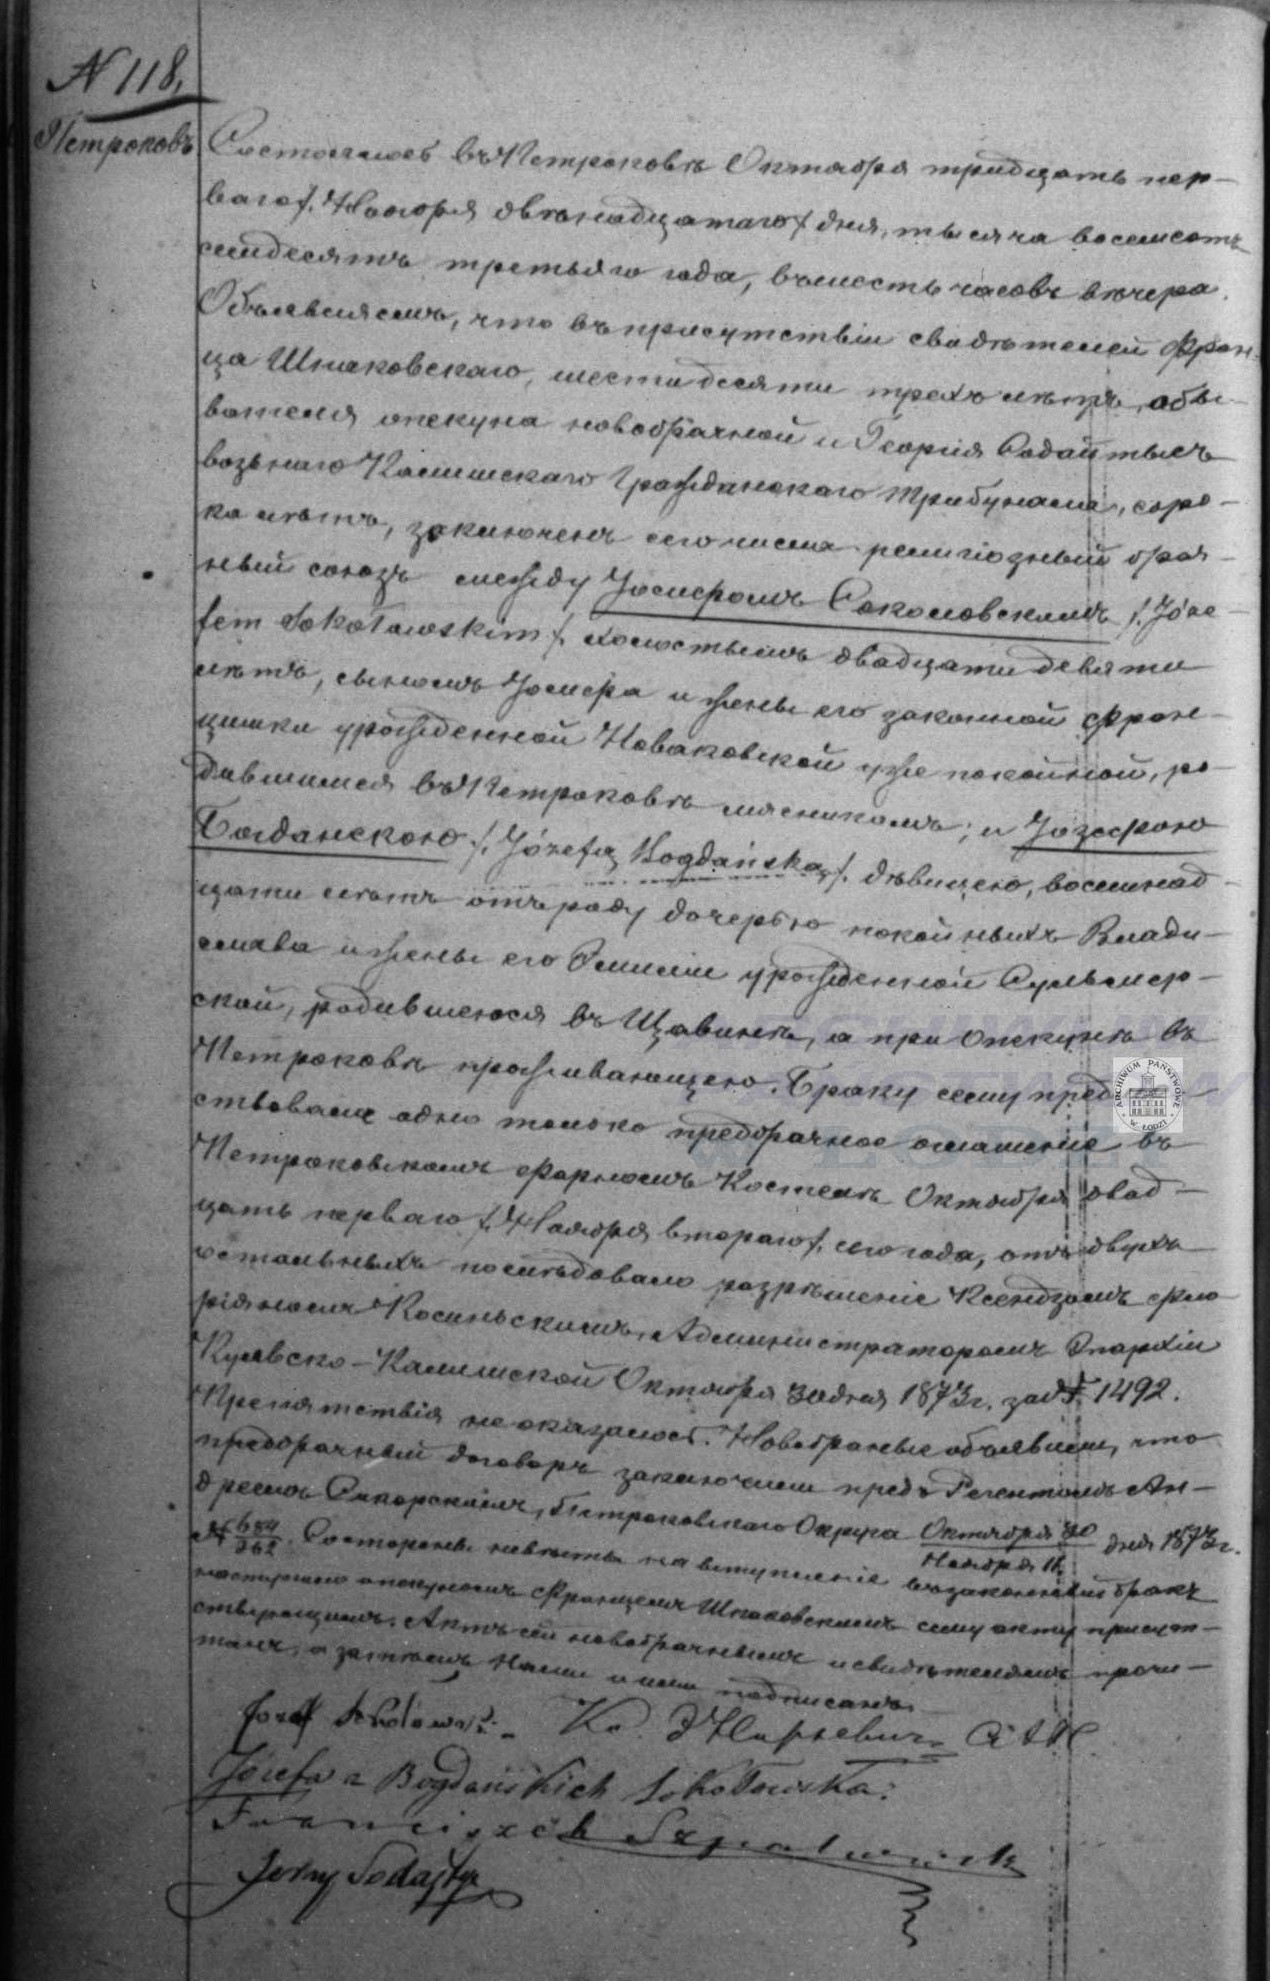 № 118.
Петроковъ
Состоялось въ Петроковѣ Октября тридцать пер-
ваго /: Ноября двѣнадцатаго :/ дня, тысяча восемсотъ
семидесятъ третьяго года, въ шесть часовъ вечера.
Объявляемъ, что въ присутствіи свидѣтелей Фран-
ца Шпаковскаго, шестидесяти трехъ лѣтъ, обы-
вателя опекуна новобрачной и Георгія
возьнаго Калишскаго Гражданскаго Трибунала, соро-
ка лѣтъ, заключенъ сего числа религіозный брач-
ный союзъ между Іосифомъ Соколовскимъ /: Józe-
fem Sokołowskim :/ холостымъ двадцати девяти
лѣтъ, сыномъ Іосифа и жены его законной Фран-
цишки урожденной Новаковской уже покойной, ро-
дившимся въ Петроковѣ мясникомъ; и Іозефою
Богданскою /: Józefą Bogdańską :/ дѣвицею, восемнад-
цати лѣтъ отъ роду дочерью покойныхъ Влади-
слава и жены его Эмиліи урожденной Сульмер-
ской, родившеюся въ Щавинѣ, а при опекунѣ въ
Петроковѣ проживающею. Браку сему пред-
ствовало одно только предбрачное оглашеніе въ
Петроковскомъ Фарномъ Костелѣ Октября двад-
цать перваго /: Ноября втораго :/ сего года, отъ двухъ
остальныхъ послѣдовало разрѣшеніе Ксендзомъ Фло
ріяномъ Косиньскимъ, Администраторомъ Епархіи
Куявско-Калишской Октября 30 дня 1873 г. за № 1492.
Препятствія не оказалось. Новобрачные объявили, что
предбрачный договоръ заключили предъ Регентомъ Ан-
дреемъ Сикорскимъ, Петроковскаго Округа Октября 30 / Ноября 11 дня 1873 г.
№ 684/262. Со стороны невѣсты на вступленіе въ законный бракъ
опекуномъ Францемъ Шпаковскимъ сему акту присут-
ствующимъ. Актъ сей новобрачнымъ и свидѣтелямъ прочи-
танъ, а затѣмъ Нами и ими подписанъ.
Józef Sokołowski. Кс.
Józefa z Bogdańskich Sokołowska.
Franciszek Szpakowski
Jerzy
ARCHIWUM PAŃSTWOWE W ŁODZI